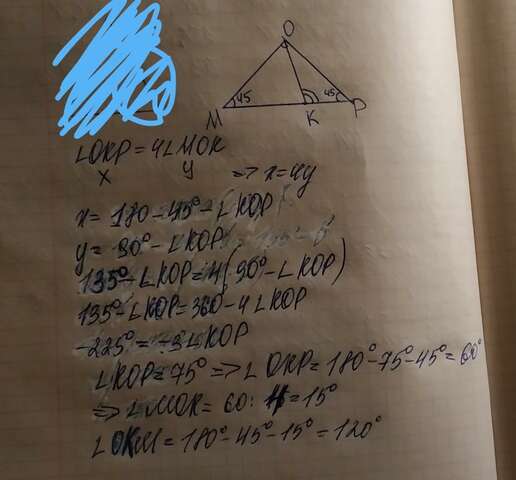 O
45
45
M
K
P
∠OKP = 4∠MOK
x y => x = 4y
x = 180 - 45° - ∠KOP
y = 90° - ∠KOP
135° - ∠KOP = 4(90° - ∠KOP)
135° - ∠KOP = 360 - 4∠KOP
-225° = -3∠KOP
∠KOP = 75° => ∠OKP = 180° - 75° - 45° = 60°
=> ∠MOK = 60 : 4 = 15°
∠OKM = 180° - 45° - 15° = 120°